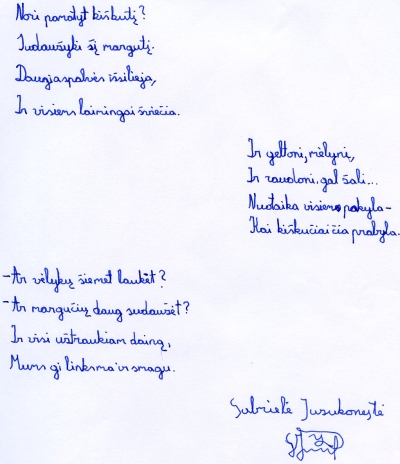 Nori pamatyt kiškutį?
Sudaužyki šį margutį.
Daugiaspalvės išsilieja,
Ir visiems laimingai šviečia.
Ir geltoni, mėlyni,
Ir raudoni, gal žali...
Nuotaika visiems pakyla-
Kai kiškučiai čia prabyla.
-Ar velykų šiemet laukėt?
-Ar margučių daug sudaužėt?
Ir visi užtraukiam dainą,
Mums gi linksma ir smagu.
Gabrielė Jusukonytė